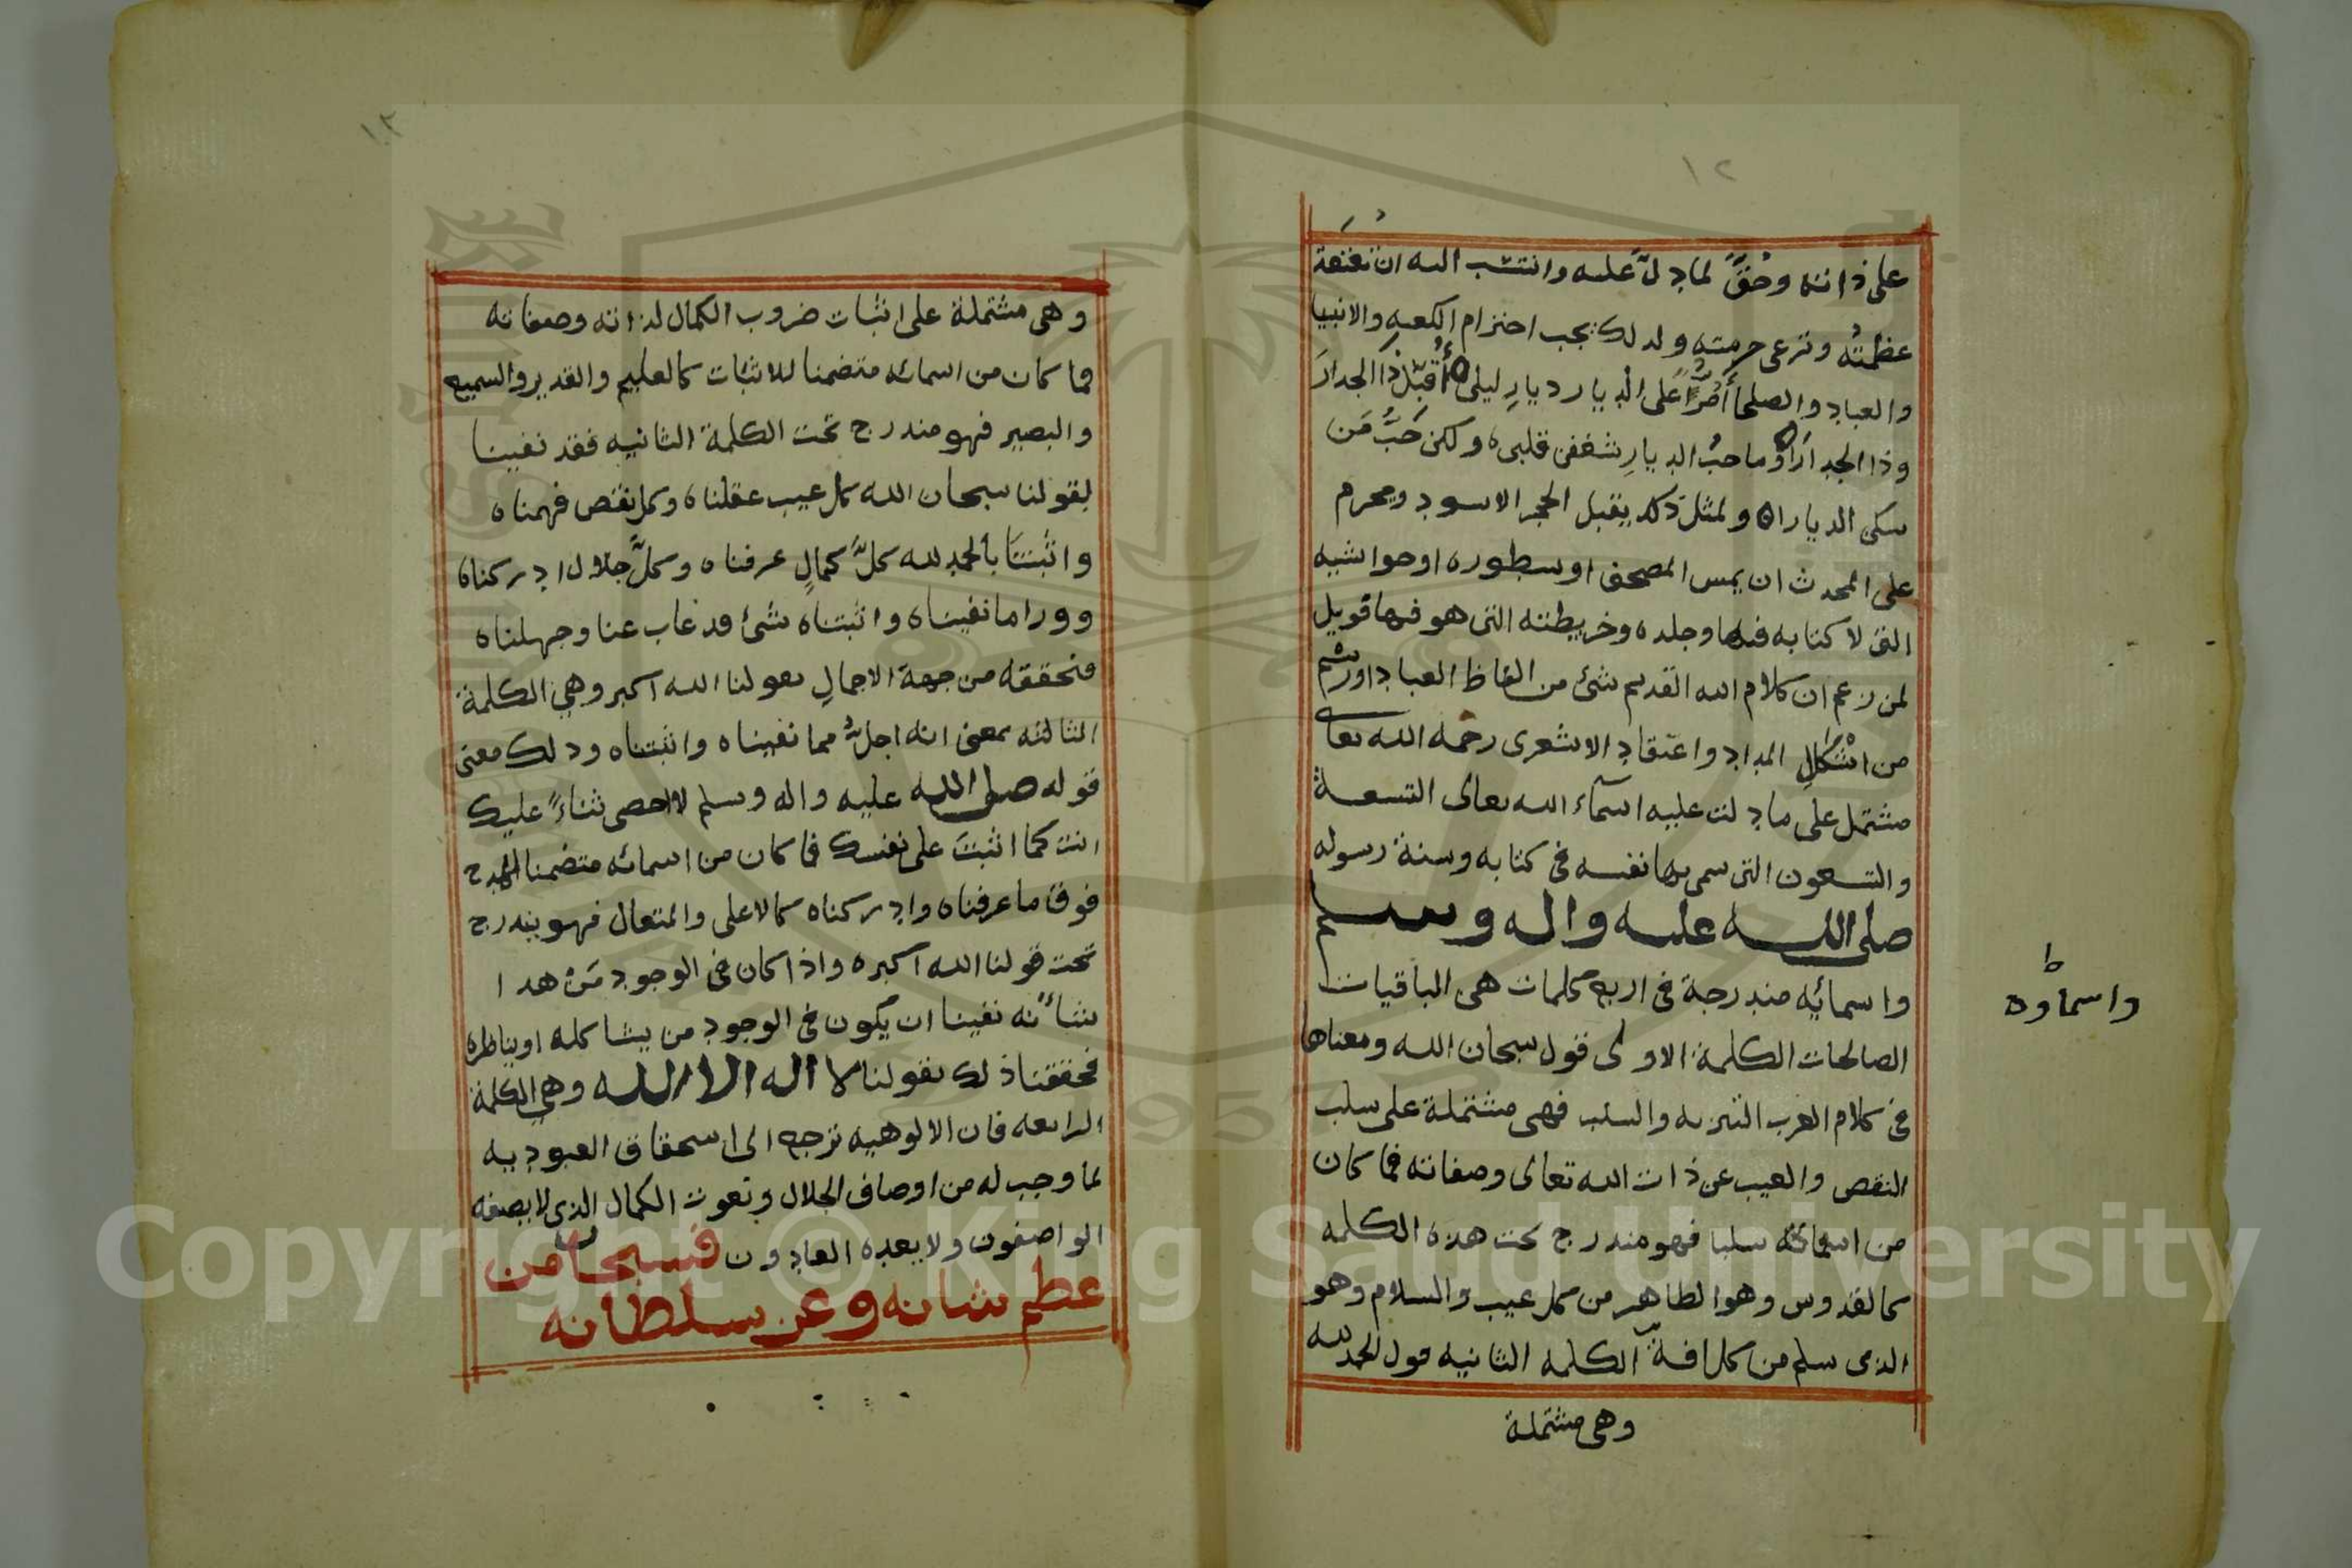 ١٢
على ذاته وحُقَّ لما دلّ عليه وانتسب اليه ان تعتقد
عظمتُه وترعى حرمته ولذلك يجب احترام الكعبه والانبيا
والعباد والصلحا أَمُرُّ على الديار ديارِ ليلى ه أُقبّل ذا الجدارَ
وذا الجدارا ه وما حبُّ الديارِ شغفن قلبى ه ولكن حَبُّ مَن
سكن الديارا ه ولمثل ذلك يقبل الحجر الاسود ويحرم
على المحدث ان يمس المصحف او سطوره او حواشيه
التى لا كتابه فيها وجلده وخريطته التى هو فيها فويل
لمن زعم ان كلام الله القديم شئ من الفاظ العباد او رسم
من اشكالِ المداد واعتقاد الاشعرى رحمه الله تعالى
مشتمل على ما دلت عليه اسمآء الله تعالى التسعة
والتسعون التى سمى بها نفسه فى كتابه وسنة رسوله
صلى الله عليه واله وسلم
واسمايه مندرجة فى اربع كلمات هى الباقيات
الصالحات الكلمة الاولى قول سبحان الله ومعناها
فى كلام العرب التنزيه والسلب فهى مشتملة على سلب
النقص والعيب عن ذات الله تعالى وصفاته فما كان
من اسمائه سلبا فهو مندرج تحت هذه الكلمه
كالقدوس وهو الطاهر من كل عيب والسلام وهو
الذى سلم من كل افة الكلمه الثانيه قول الحمد لله
وهى مشتملة
ط
واسماوه
١٣
وهى مشتملة على اثبات ضروب الكمال لذاته وصفاته
فما كان من اسمائه متضمنا للاثبات كالعليم والقدير والسميع
والبصير فهو مندرج تحت الكلمة الثانيه فقد نفينا
بقولنا سبحان الله كل عيب عقلناه وكل نقص فهمناه
واثبتنَا بالحمد لله كلَّ كمالٍ عرفناه وكلَّ جلال ادركناه
وورا ما نفيناه واثبتناه شئ قد غاب عنا وجهلناه
فنحققه من جهة الاجمالِ بقولنا الله اكبر وهى الكلمة
الثالثه بمعنى انه اجلُّ مما نفيناه واثبتناه وذلك معنى
قوله صلى الله عليه واله وسلم لا احصى ثناءً عليك
انت كما اثنيتَ على نفسك فما كان من اسمائه متضمنا لمدح
فوق ما عرفناه وادركناه كالاعلى والمتعال فهو يندرج
تحت قولنا الله اكبر ه واذا كان فى الوجود مَنْ هذا
شأنه نفينا ان يكون فى الوجود من يشاكله او يناظره
فحققنا ذلك بقولنا لا اله الا الله وهى الكلمة
الرابعه فان الالوهيه ترجع الى استحقاق العبوديه
لما وجب له من اوصاف الجلال ونعوت الكمال الذى لا يصفه
الواصفون ولا يعده العادون فسبحان من
عظم شانه وعز سلطانه
Copyright © King Saud University